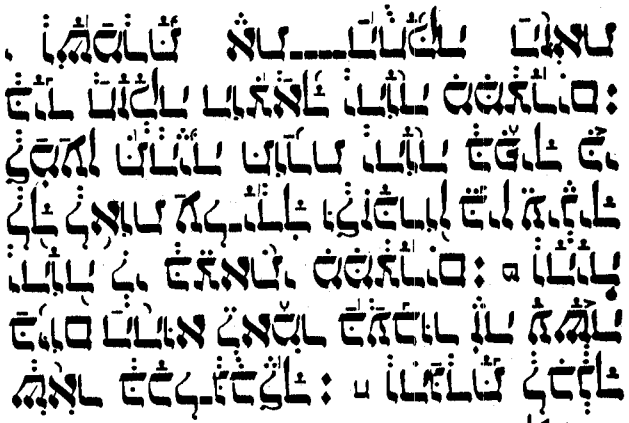 שאר בכל־גבלך: ח והגדת לבנך
ביום ההוא לאמר בעבור זה עשה
יהוה לי בצאתי ממצרים: ט והיה
לך לאות על־ידך ולזכרון בין עיניך
למען תהיה תורת יהוה בפיך כי
ביד חזקה הוצאך יהוה ממצרים:
י ושמרת את־החקה הזאת